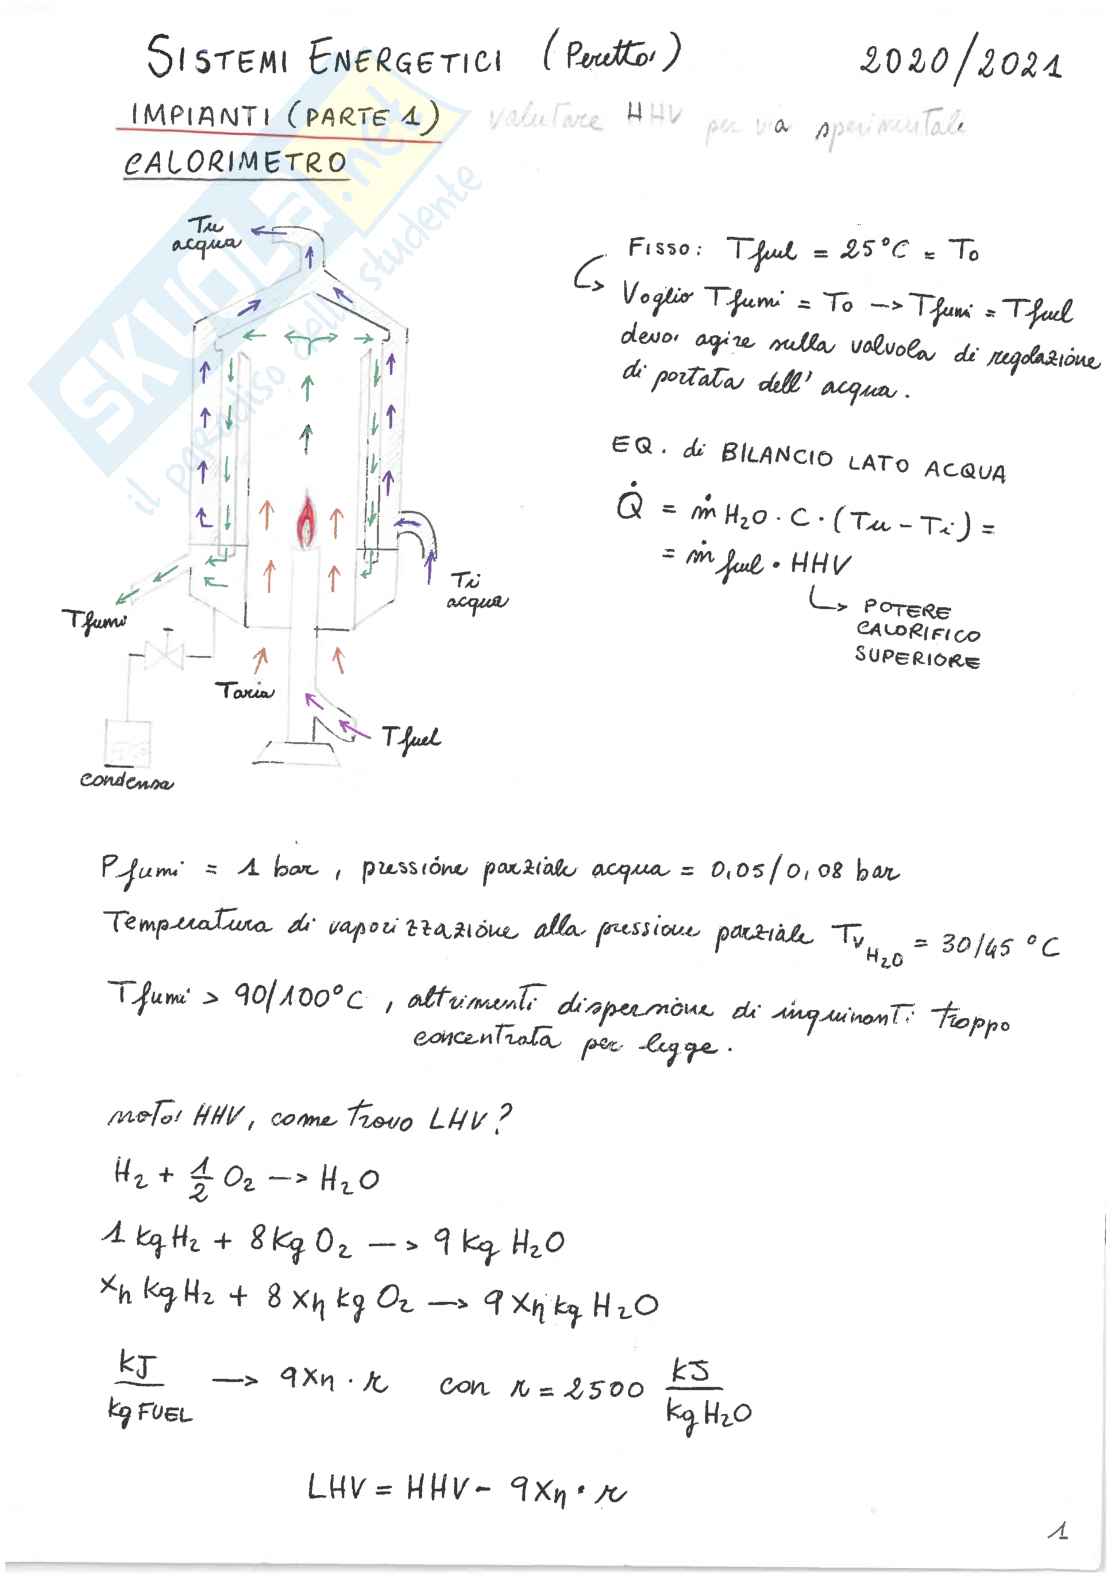 SISTEMI ENERGETICI (Peretto) 2020/2021
IMPIANTI (PARTE 1) valutare HHV per via sperimentale
CALORIMETRO
SKUOLA.net
il paradiso dello studente
Tu
acqua
Fisso: Tfuel = 25°C = To
Voglio Tfumi = To -> Tfumi = Tfuel
devo agire sulla valvola di regolazione
di portata dell' acqua.
EQ. di BILANCIO LATO ACQUA
Q̇ = ṁ H2O · C · (Tu - Ti) =
= ṁ fuel · HHV
POTERE
CALORIFICO
SUPERIORE
Ti
acqua
Tfumi
Taria
Tfuel
condensa
Pfumi = 1 bar, pressione parziale acqua = 0,05/0,08 bar
Temperatura di vaporizzazione alla pressione parziale Tv H2O = 30/45 °C
Tfumi > 90/100°C, altrimenti dispersione di inquinanti troppo
concentrata per legge.
noto HHV, come trovo LHV?
H2 + 1/2 O2 -> H2O
1 kg H2 + 8 kg O2 -> 9 kg H2O
xh kg H2 + 8 xh kg O2 -> 9 xh kg H2O
kJ/kg FUEL -> 9xh · r con r = 2500 kJ/kg H2O
LHV = HHV - 9xh · r
1